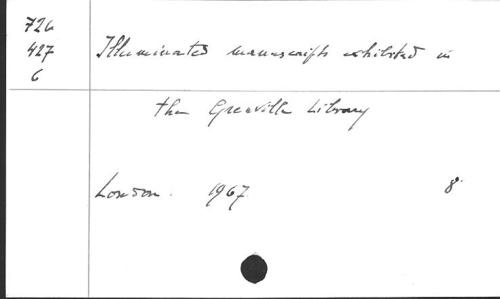 726
427
6
Illuminated manuscripts exhibited in
the Grenville Library
London. 1967 8°